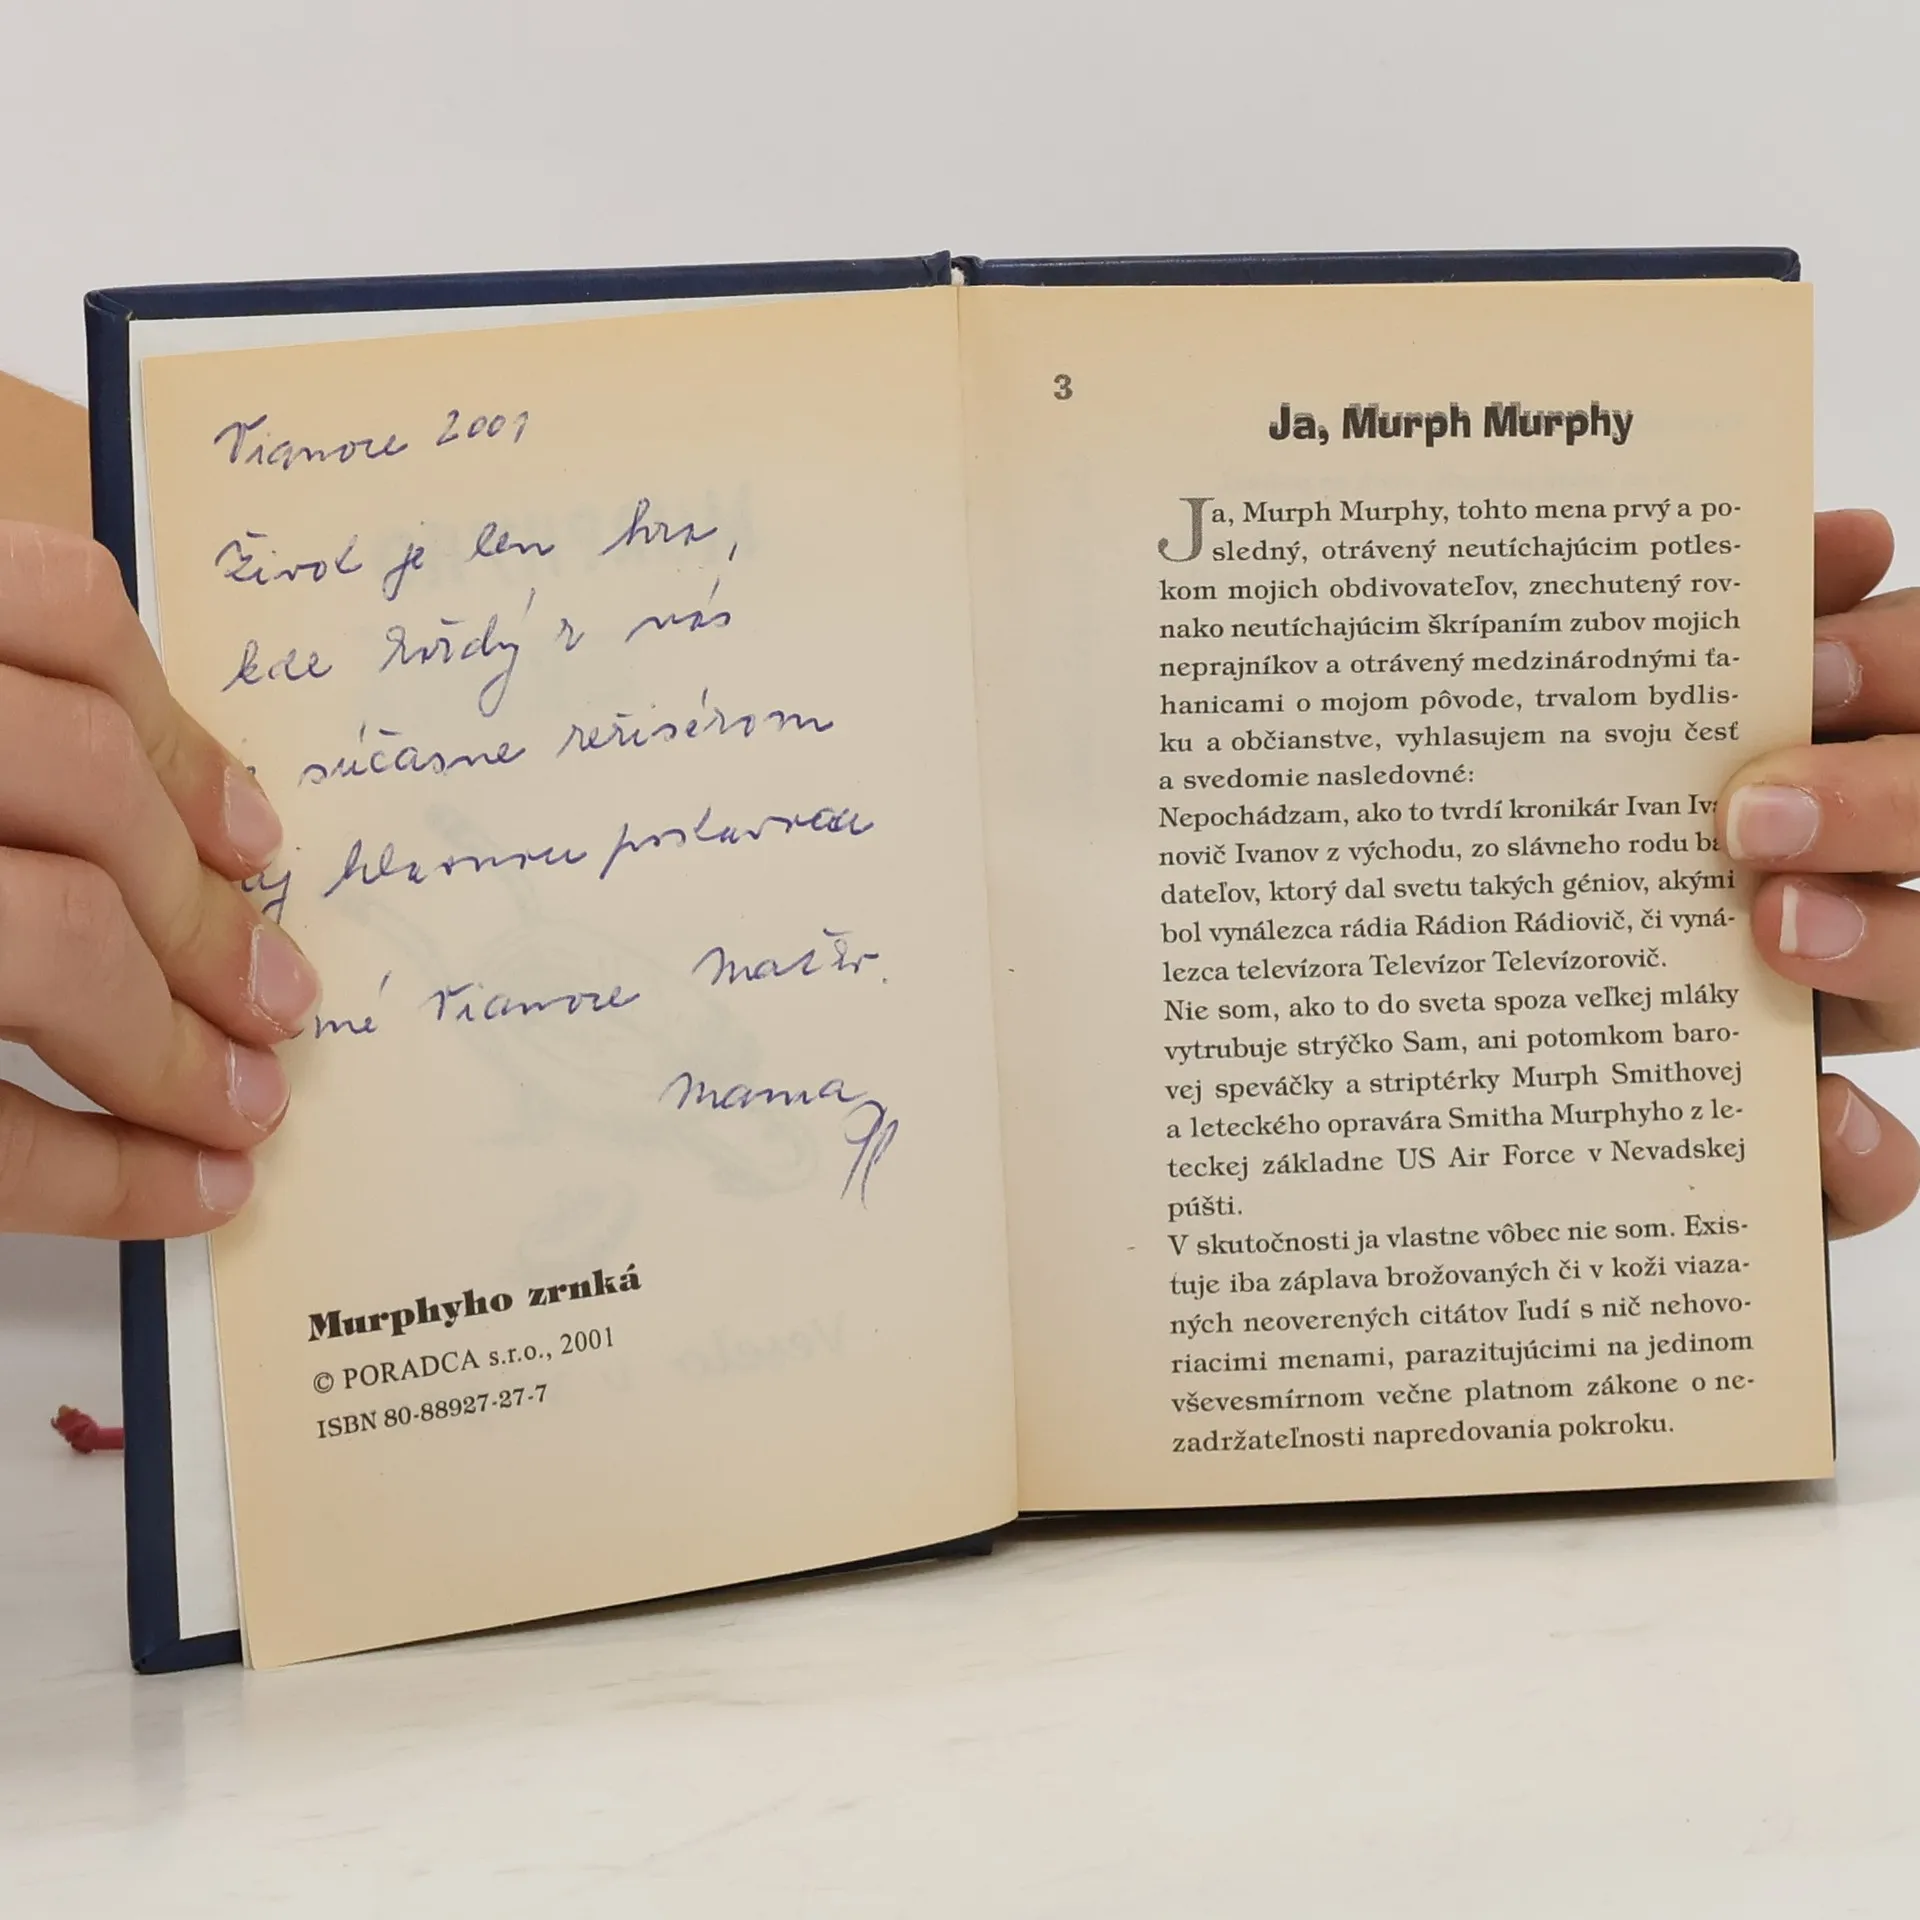 Vianoce 2001
Život je len hra,
kde každý z nás
súčasne režisérom
aj hlavnou postavou
mé Vianoce Maťko.
Mama
Murphyho zrnká
© PORADCA s.r.o., 2001
ISBN 80-88927-27-7
3
Ja, Murph Murphy
Ja, Murph Murphy, tohto mena prvý a po-
sledný, otrávený neutíchajúcim potles-
kom mojich obdivovateľov, znechutený rov-
nako neutíchajúcim škrípaním zubov mojich
neprajníkov a otrávený medzinárodnými ťa-
hanicami o mojom pôvode, trvalom bydlis-
ku a občianstve, vyhlasujem na svoju česť
a svedomie nasledovné:
Nepochádzam, ako to tvrdí kronikár Ivan Iva
novič Ivanov z východu, zo slávneho rodu bá
dateľov, ktorý dal svetu takých géniov, akými
bol vynálezca rádia Rádion Rádiovič, či vyná-
lezca televízora Televízor Televízorovič.
Nie som, ako to do sveta spoza veľkej mláky
vytrubuje strýčko Sam, ani potomkom baro-
vej speváčky a striptérky Murph Smithovej
a leteckého opravára Smitha Murphyho z le-
teckej základne US Air Force v Nevadskej
púšti.
V skutočnosti ja vlastne vôbec nie som. Exis-
tuje iba záplava brožovaných či v koži viaza-
ných neoverených citátov ľudí s nič nehovo-
riacimi menami, parazitujúcimi na jedinom
vševesmírnom večne platnom zákone o ne-
zadržateľnosti napredovania pokroku.